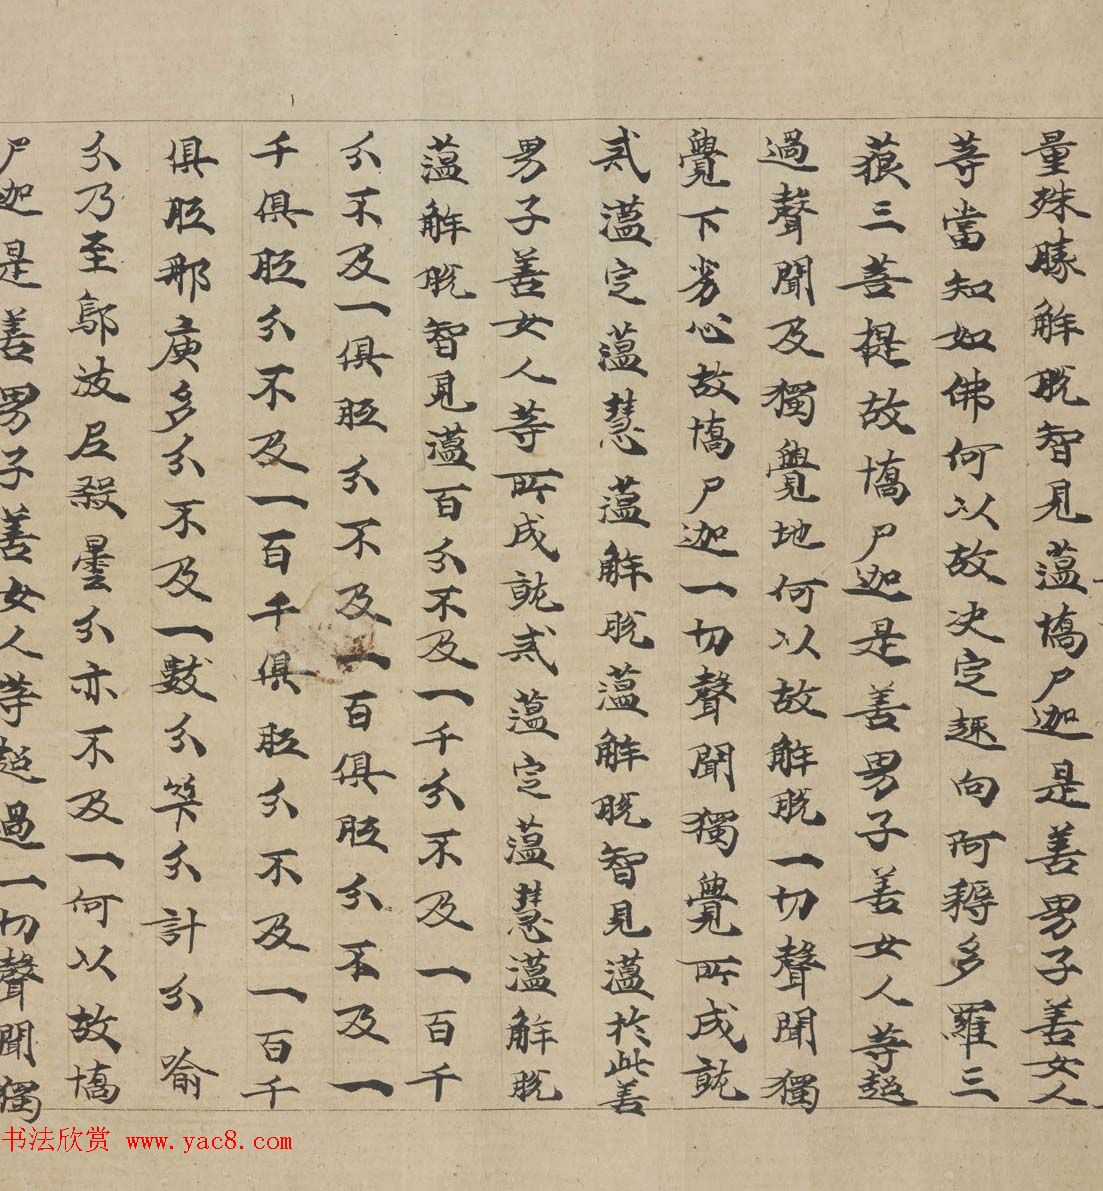 量殊勝解脫智見蘊憍尸迦是善男子善女人
等當知如佛何以故決定趣向阿耨多羅三
藐三菩提故憍尸迦是善男子善女人等超
過聲聞及獨覺地何以故解脫一切聲聞獨
覺下劣心故憍尸迦一切聲聞獨覺所成就
戒蘊定蘊慧蘊解脫蘊解脫智見蘊於此善
男子善女人等所成就戒蘊定蘊慧蘊解脫
蘊解脫智見蘊百分不及一千分不及一百千
分不及一俱胝分不及一百俱胝分不及一
千俱胝分不及一百千俱胝分不及一百千
俱胝那庾多分不及一數分筭分計分喻
分乃至鄔波尼殺曇分亦不及一何以故憍
尸迦是善男子善女人等超過一切聲聞獨
书法欣赏 www.yac8.com